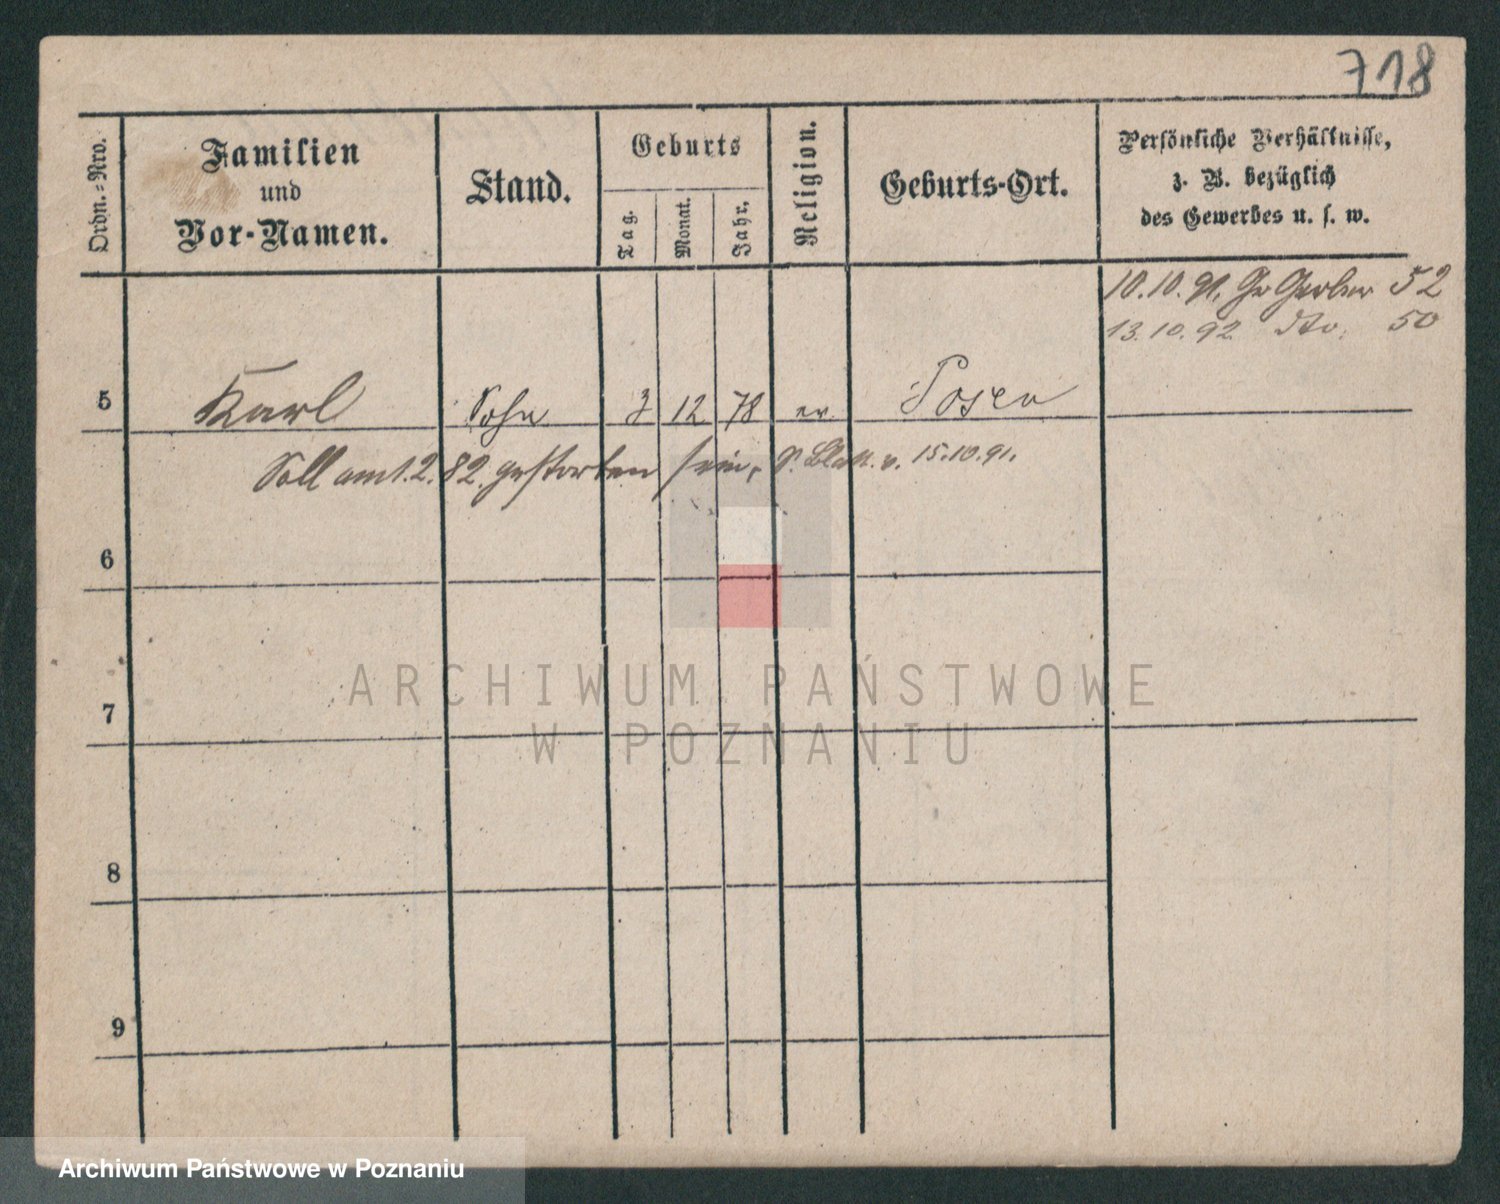 718
Ordn.=Nro.
Familien
und
Vor-Namen.
Stand.
Geburts
Tag.
Monat.
Jahr.
Religion.
Geburts-Ort.
Persönliche Verhältnisse,
z. B. bezüglich
des Gewerbes u. s. w.
10.10.91. Gr Gerber 52
13.10.92 dto. 50
5 Karl Sohn 3 12 78 ev Posen
Soll am 1.2.82. gestorben sein, S. Blatt. v. 15.10.91.
6
7
8
9
ARCHIWUM PAŃSTWOWE
W POZNANIU
Archiwum Państwowe w Poznaniu